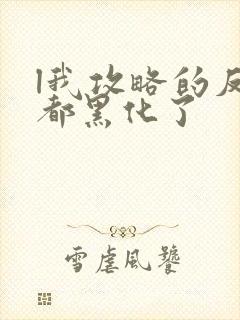 我攻略的反
都黑化了
雪虐风饕